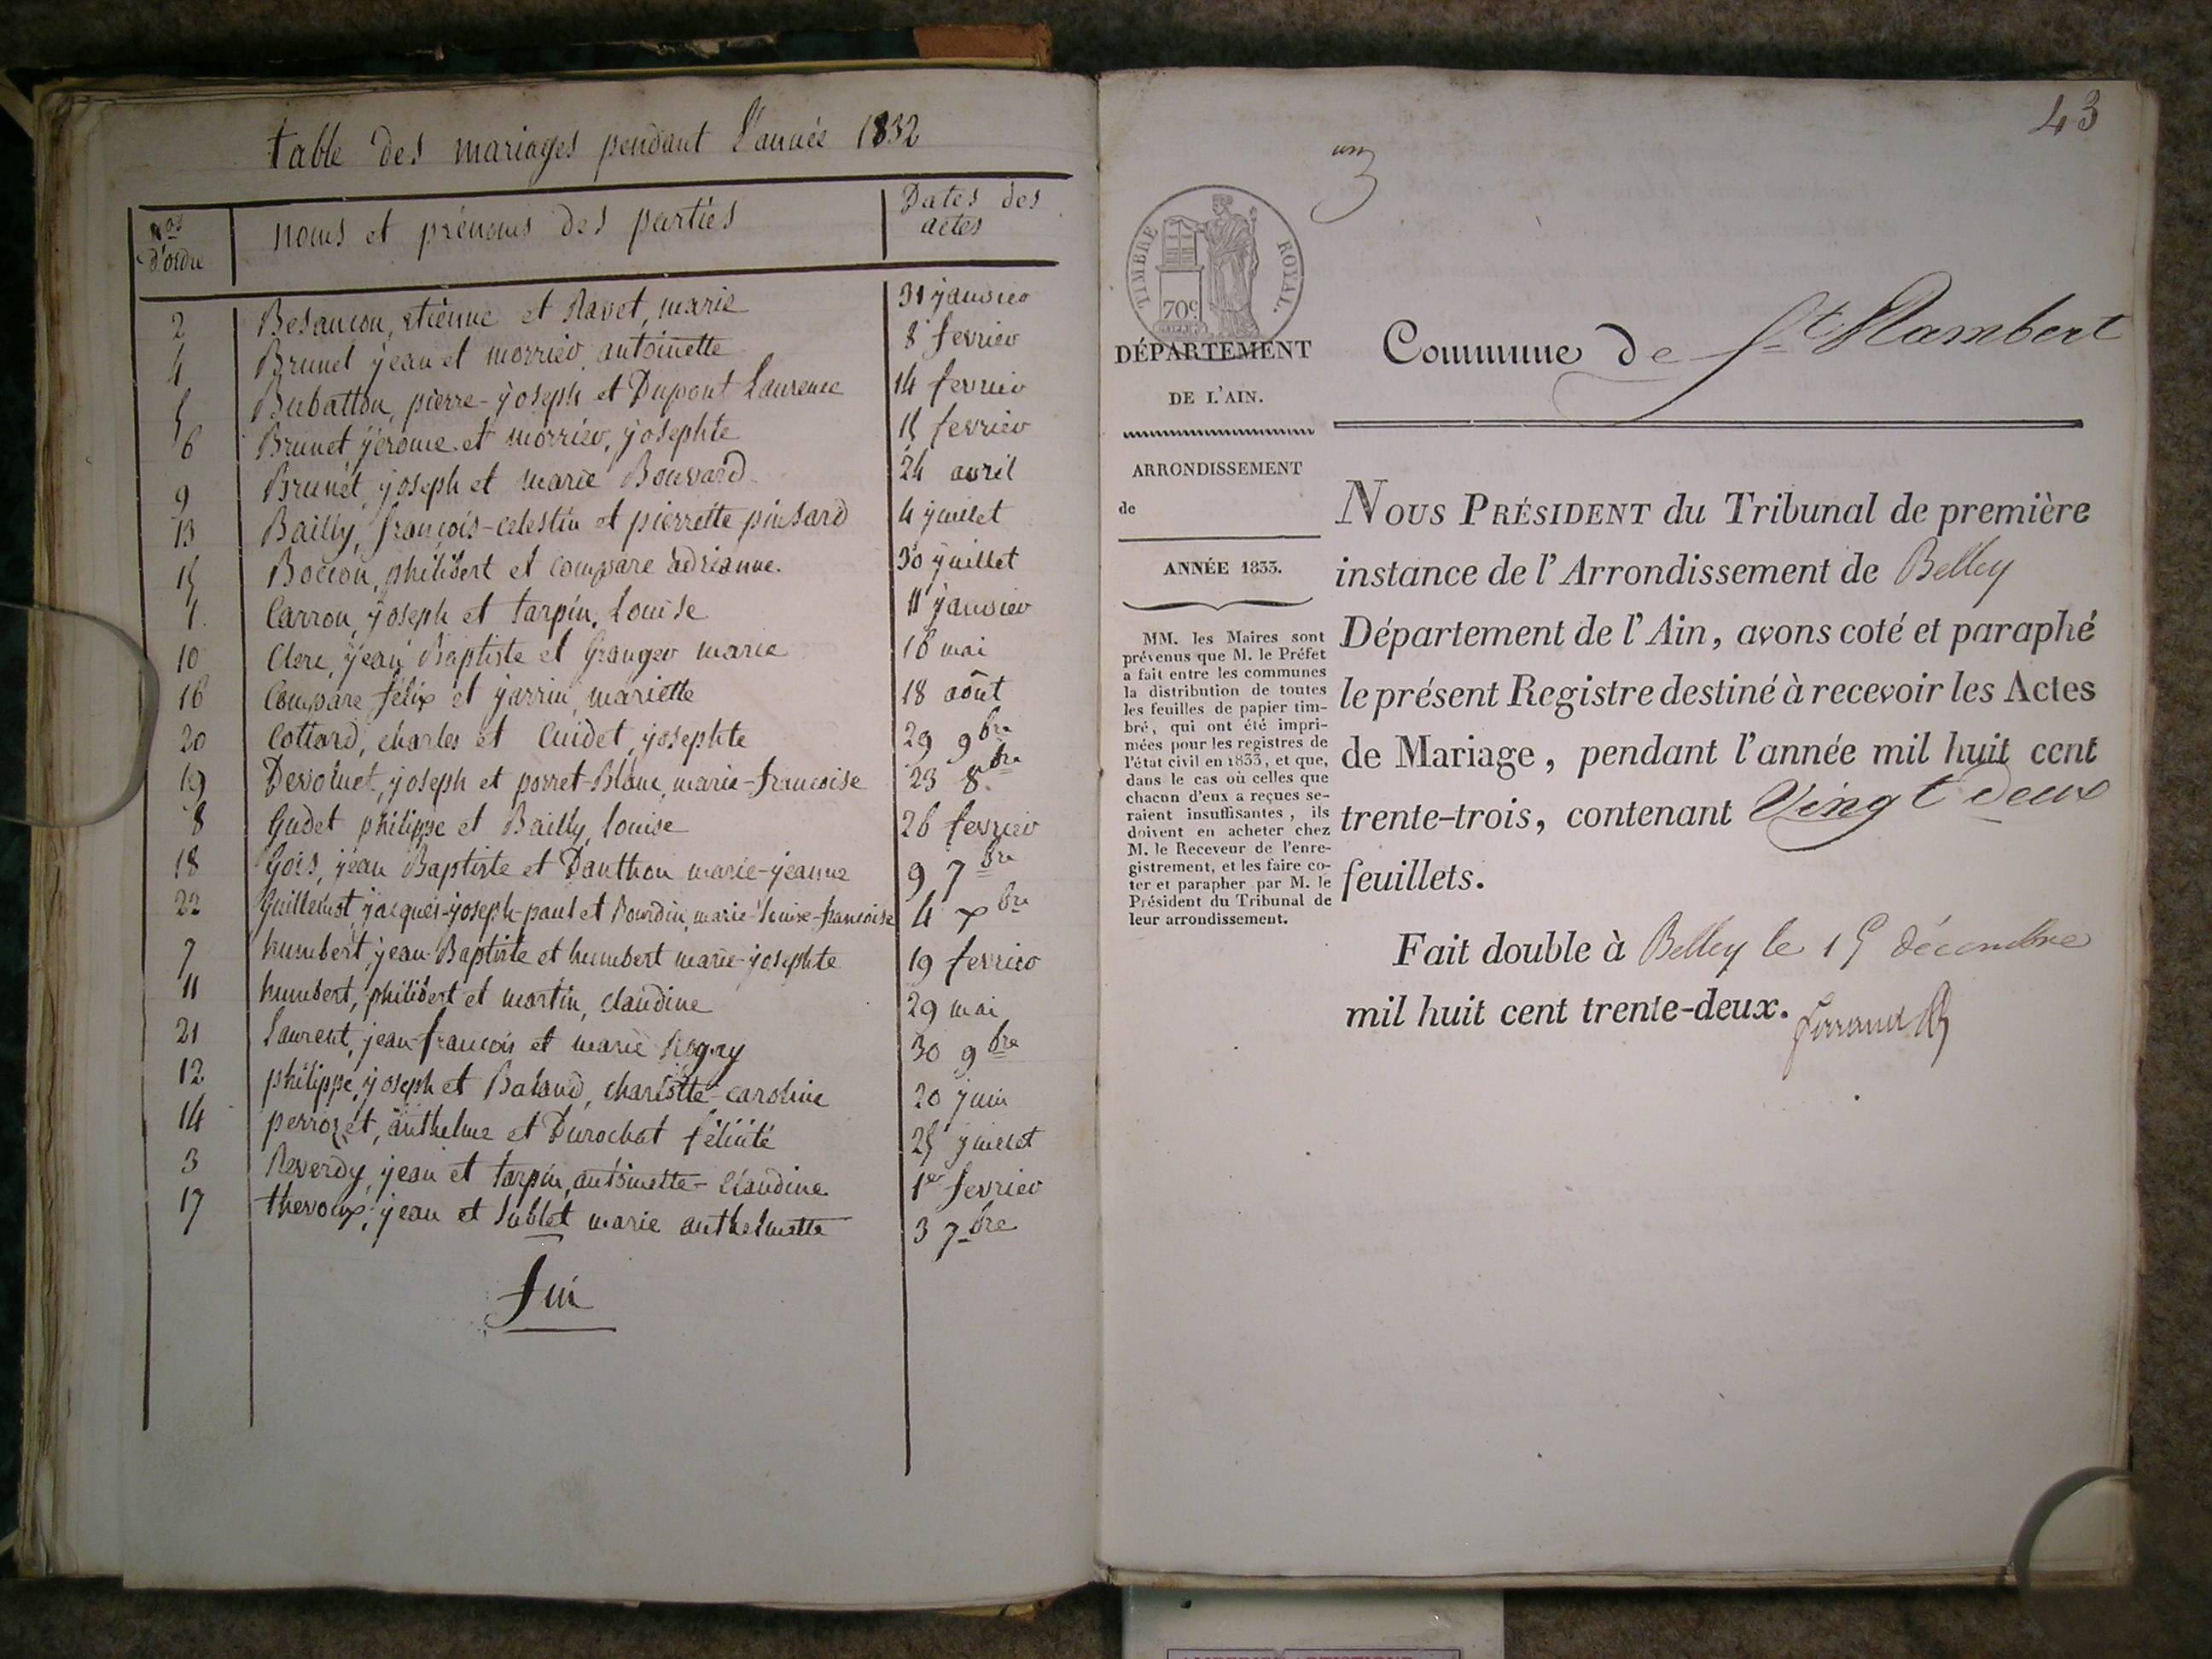 table des mariages pendant l'année 1832
Nos d'ordre
noms et prénoms des parties
Dates des actes
2 Besancon, etienne et Ravet, marie 31 janvier
4 Brunet jean et morrier antoinette 8 fevrier
5 Bubatton, pierre-joseph et Dupont Laurence 14 fevrier
6 Brunet jerome et morrier, josephte 15 fevrier
9 Brunet joseph et marie Bouvard 24 avril
13 Bailly, françois-celestin et pierrette pinsard 4 juillet
15 Bocion, philibert et compare adrianne. 30 juillet
1. Carron, joseph et tarpin, Louise 11 janvier
10 Clerc, jean Baptiste et Granger marie 16 mai
16 Compare félix et jarrin, mariette 18 août
20 Cottard, charles et Cuidet, josephte 29 9bre
19 Devoluet, joseph et porret-Blanc, marie-francoise 23 8.bre
8 Gudet philippe et Bailly, louise 26 fevrier
18 Gois, jean Baptiste et Danthon marie-jeanne 9 7bre
22 Guillemot, jacques-joseph-paul et Bourdin, marie-louise-francoise 4 xbre
7 humbert, jean-Baptiste et humbert marie-josephte 19 fevrier
11 humbert, philibert et martin, claudine 29 mai
21 Laurent, jean-francois et marie 30 9bre
12 philippe, joseph et Baland, charlotte-caroline 20 juin
14 perrozet, anthelme et Durochat félicité 25 juillet
3 Reverdy, jean et tarpin, antoinette-Claudine 1er fevrier
17 thevoux, jean et Sublet marie anthelmette 3 7bre
fin
43
TIMBRE ROYAL.
70c
DÉPARTEMENT
DE L'AIN.
ARRONDISSEMENT
de
ANNÉE 1833.
MM. les Maires sont
prévenus que M. le Préfet
a fait entre les communes
la distribution de toutes
les feuilles de papier tim-
bré, qui ont été impri-
mées pour les registres de
l'état civil en 1833, et que,
dans le cas où celles que
chacun d'eux a reçues se-
raient insuffisantes, ils
doivent en acheter chez
M. le Receveur de l'enre-
gistrement, et les faire co-
ter et parapher par M. le
Président du Tribunal de
leur arrondissement.
Commune de St Rambert
NOUS PRÉSIDENT du Tribunal de première
instance de l'Arrondissement de Belley
Département de l'Ain, avons coté et paraphé
le présent Registre destiné à recevoir les Actes
de Mariage, pendant l'année mil huit cent
trente-trois, contenant Vingt deux
feuillets.
Fait double à Belley le 15 décembre
mil huit cent trente-deux.